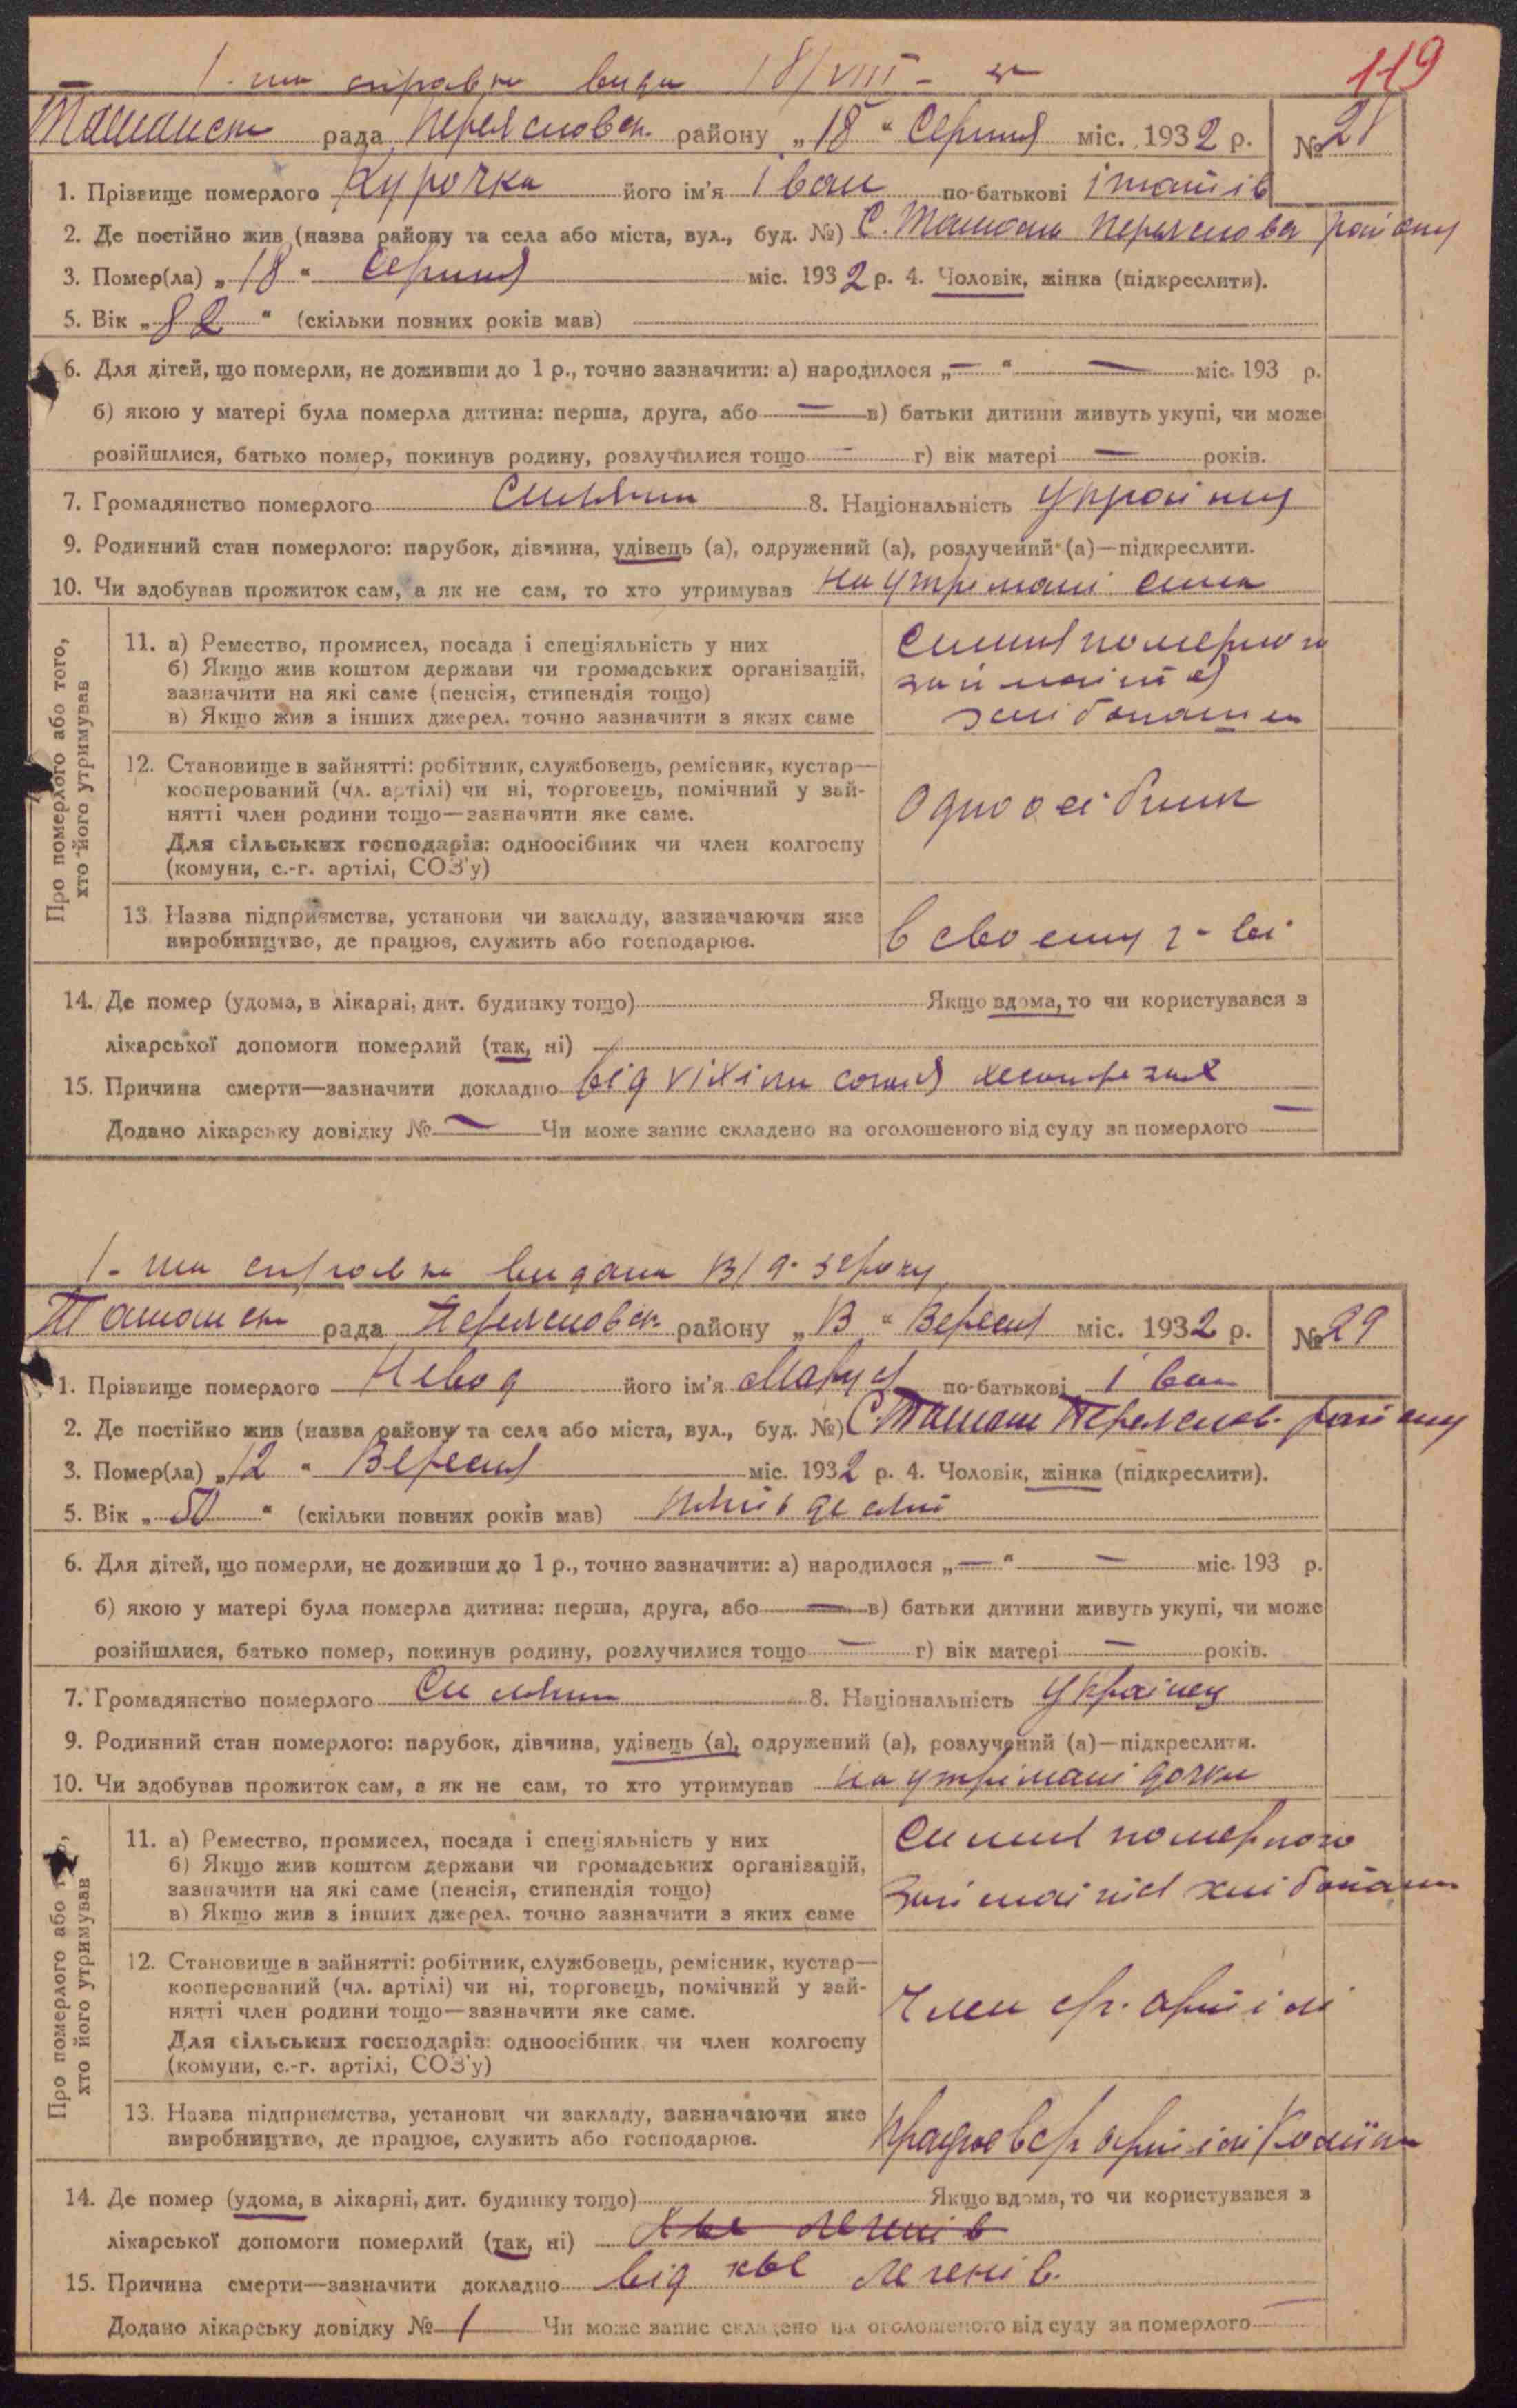 119
1-ша справка вида 18/VIII-
Ташанськ рада Переяславськ. району „18“ Серпня міс. 1932 р. № 28
1. Прізвище померлого Курочка його ім'я Іван по-батькові
2. Де постійно жив (назва району та села або міста, вул., буд. №) С. Ташань Переяслов району
3. Помер(ла) „18“ Серпня міс. 1932 р. 4. Чоловік, жінка (підкреслити).
5. Вік „82“ (скільки повних років мав)
6. Для дітей, що померли, не доживши до 1 р., точно зазначити: а) народилося „—“ — міс. 193 р.
б) якою у матері була померла дитина: перша, друга, або — в) батьки дитини живуть укупі, чи може
розійшлися, батько помер, покинув родину, розлучилися тощо — г) вік матері — років.
7. Громадянство померлого 8. Національність Україньц
9. Родинний стан померлого: парубок, дівчина, удівець (а), одружений (а), розлучений (а)—підкреслити.
10. Чи здобував прожиток сам, а як не сам, то хто утримував На утрімані сина
Про померлого або того,
хто його утримував
11. а) Ремество, промисел, посада і спеціяльність у них
б) Якщо жив коштом держави чи громадських організацій,
зазначити на які саме (пенсія, стипендія тощо)
в) Якщо жив з інших джерел, точно зазначити з яких саме
померлого
12. Становище в зайнятті: робітник, службовець, ремісник, кустар—
кооперований (чл. артілі) чи ні, торговець, помічний у зай-
нятті член родини тощо—зазначити яке саме.
Для сільських господарів: одноосібник чи член колгоспу
(комуни, с.-г. артілі, СОЗ'у)
Одноосібник
13. Назва підприємства, установи чи закладу, зазначаючи яке
виробництво, де працює, служить або господарює.
в своєму г-ві
14. Де помер (удома, в лікарні, дит. будинку тощо) Якщо вдома, то чи користувався з
лікарської допомоги померлий (так, ні) —
15. Причина смерти—зазначити докладно від
Додано лікарську довідку № — Чи може запис складено на оголошеного від суду за померлого —
1-ша справка видана 13/9-32 року
Ташанськ рада Переясловськ. району „13“ Вересня міс. 1932 р. № 29
1. Прізвище померлого Невод його ім'я Маруся по-батькові Іван
2. Де постійно жив (назва району та села або міста, вул., буд. №) С. Ташань Переяслов. району
3. Помер(ла) „12“ Вересня міс. 1932 р. 4. Чоловік, жінка (підкреслити).
5. Вік „50“ (скільки повних років мав)
6. Для дітей, що померли, не доживши до 1 р., точно зазначити: а) народилося „—“ — міс. 193 р.
б) якою у матері була померла дитина: перша, друга, або — в) батьки дитини живуть укупі, чи може
розійшлися, батько помер, покинув родину, розлучилися тощо — г) вік матері — років.
7. Громадянство померлого 8. Національність Українец
9. Родинний стан померлого: парубок, дівчина, удівець (а), одружений (а), розлучений (а)—підкреслити.
10. Чи здобував прожиток сам, а як не сам, то хто утримував на утрімані дочки
Про померлого або того,
хто його утримував
11. а) Ремество, промисел, посада і спеціяльність у них
б) Якщо жив коштом держави чи громадських організацій,
зазначити на які саме (пенсія, стипендія тощо)
в) Якщо жив з інших джерел, точно зазначити з яких саме
померлого
12. Становище в зайнятті: робітник, службовець, ремісник, кустар—
кооперований (чл. артілі) чи ні, торговець, помічний у зай-
нятті член родини тощо—зазначити яке саме.
Для сільських господарів: одноосібник чи член колгоспу
(комуни, с.-г. артілі, СОЗ'у)
Член с/г. артілі
13. Назва підприємства, установи чи закладу, зазначаючи яке
виробництво, де працює, служить або господарює.
Працює в с/г артілі
14. Де помер (удома, в лікарні, дит. будинку тощо) Якщо вдома, то чи користувався з
лікарської допомоги померлий (так, ні) легенів
15. Причина смерти—зазначити докладно від легенів.
Додано лікарську довідку № 1 Чи може запис складено на оголошеного від суду за померлого —